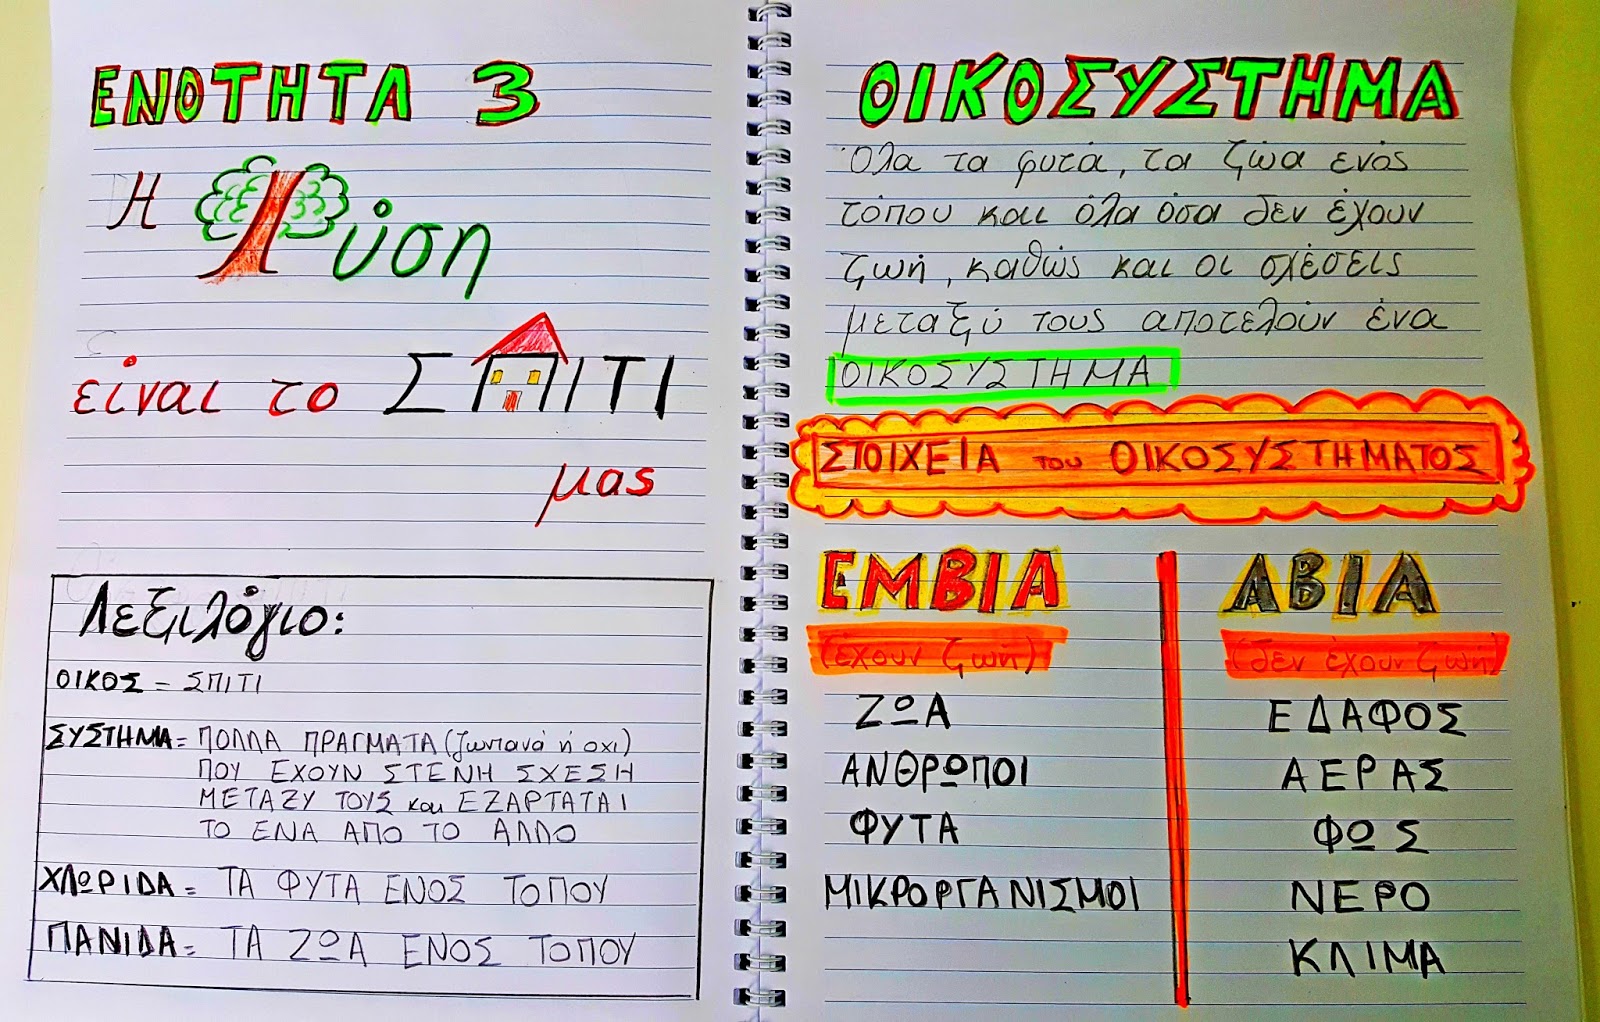 ΕΝΟΤΗΤΑ 3
Η Φύση
είναι το ΣΠΙΤΙ
μας
Λεξιλόγιο:
ΟΙΚΟΣ = ΣΠΙΤΙ
ΣΥΣΤΗΜΑ = ΠΟΛΛΑ ΠΡΑΓΜΑΤΑ (ζωντανά ή όχι)
ΠΟΥ ΕΧΟΥΝ ΣΤΕΝΗ ΣΧΕΣΗ
ΜΕΤΑΞΥ ΤΟΥΣ και ΕΞΑΡΤΑΤΑΙ
ΤΟ ΕΝΑ ΑΠΟ ΤΟ ΑΛΛΟ
ΧΛΩΡΙΔΑ = ΤΑ ΦΥΤΑ ΕΝΟΣ ΤΟΠΟΥ
ΠΑΝΙΔΑ = ΤΑ ΖΩΑ ΕΝΟΣ ΤΟΠΟΥ
ΟΙΚΟΣΥΣΤΗΜΑ
Όλα τα φυτά, τα ζώα ενός
τόπου και όλα όσα δεν έχουν
ζωή, καθώς και οι σχέσεις
μεταξύ τους αποτελούν ένα
ΟΙΚΟΣΥΣΤΗΜΑ
ΣΤΟΙΧΕΙΑ του ΟΙΚΟΣΥΣΤΗΜΑΤΟΣ
ΕΜΒΙΑ
(έχουν ζωή)
ΖΩΑ
ΑΝΘΡΩΠΟΙ
ΦΥΤΑ
ΜΙΚΡΟΡΓΑΝΙΣΜΟΙ
ΑΒΙΑ
(δεν έχουν ζωή)
ΕΔΑΦΟΣ
ΑΕΡΑΣ
ΦΩΣ
ΝΕΡΟ
ΚΛΙΜΑ